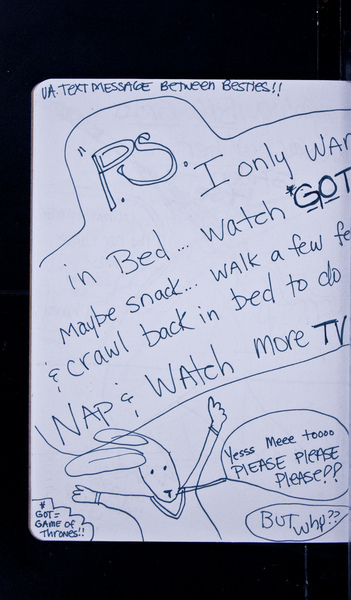 VA. TEXT MESSAGE BETWEEN BESTIES!!
"P.S. I only WAN
in Bed... watch *GOT
Maybe snack... WALK a few fe
& crawl back in bed to do
NAP & WATCH more TV
Yesss Meee toooo
PLEASE PLEASE
PLEASE??
BUT why??
*
GOT =
GAME of
Thrones!!